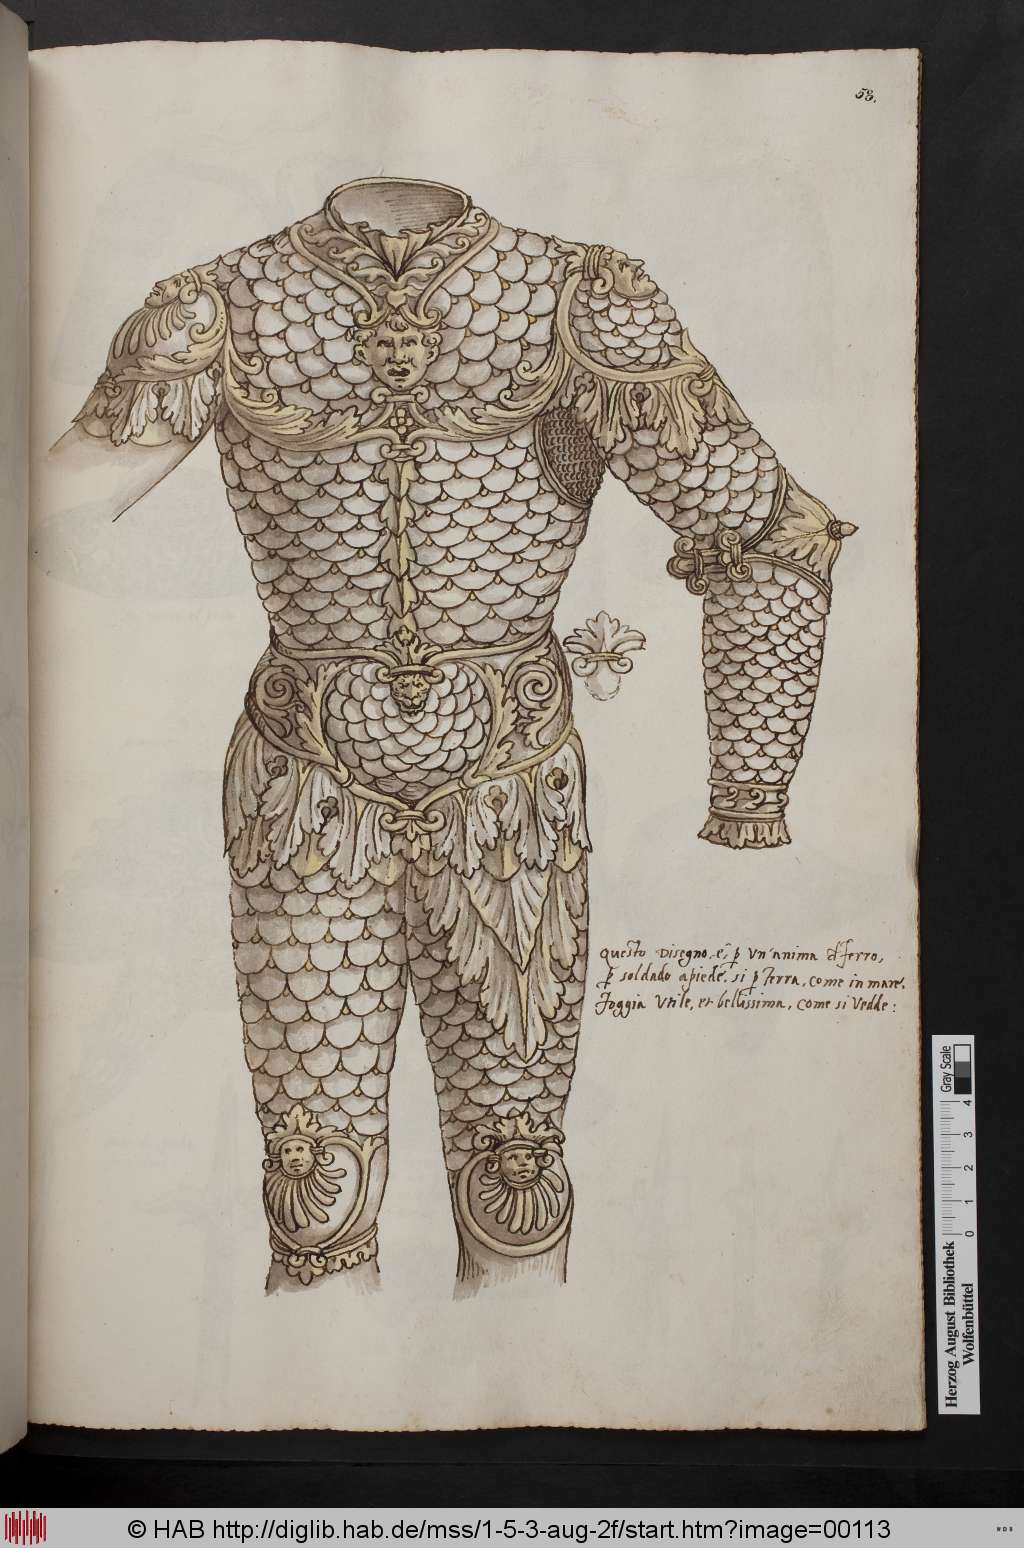 58.
Questo Disegno, e, ꝑ Un'anima d'ferro,
ꝑ soldado apiede, si ꝑ Terra, come in mare,
foggia Utile, et bellissima, come si Vedde:
Gray Scale
0 1 2 3 4
Herzog August Bibliothek
Wolfenbüttel
© HAB http://diglib.hab.de/mss/1-5-3-aug-2f/start.htm?image=00113
WDB